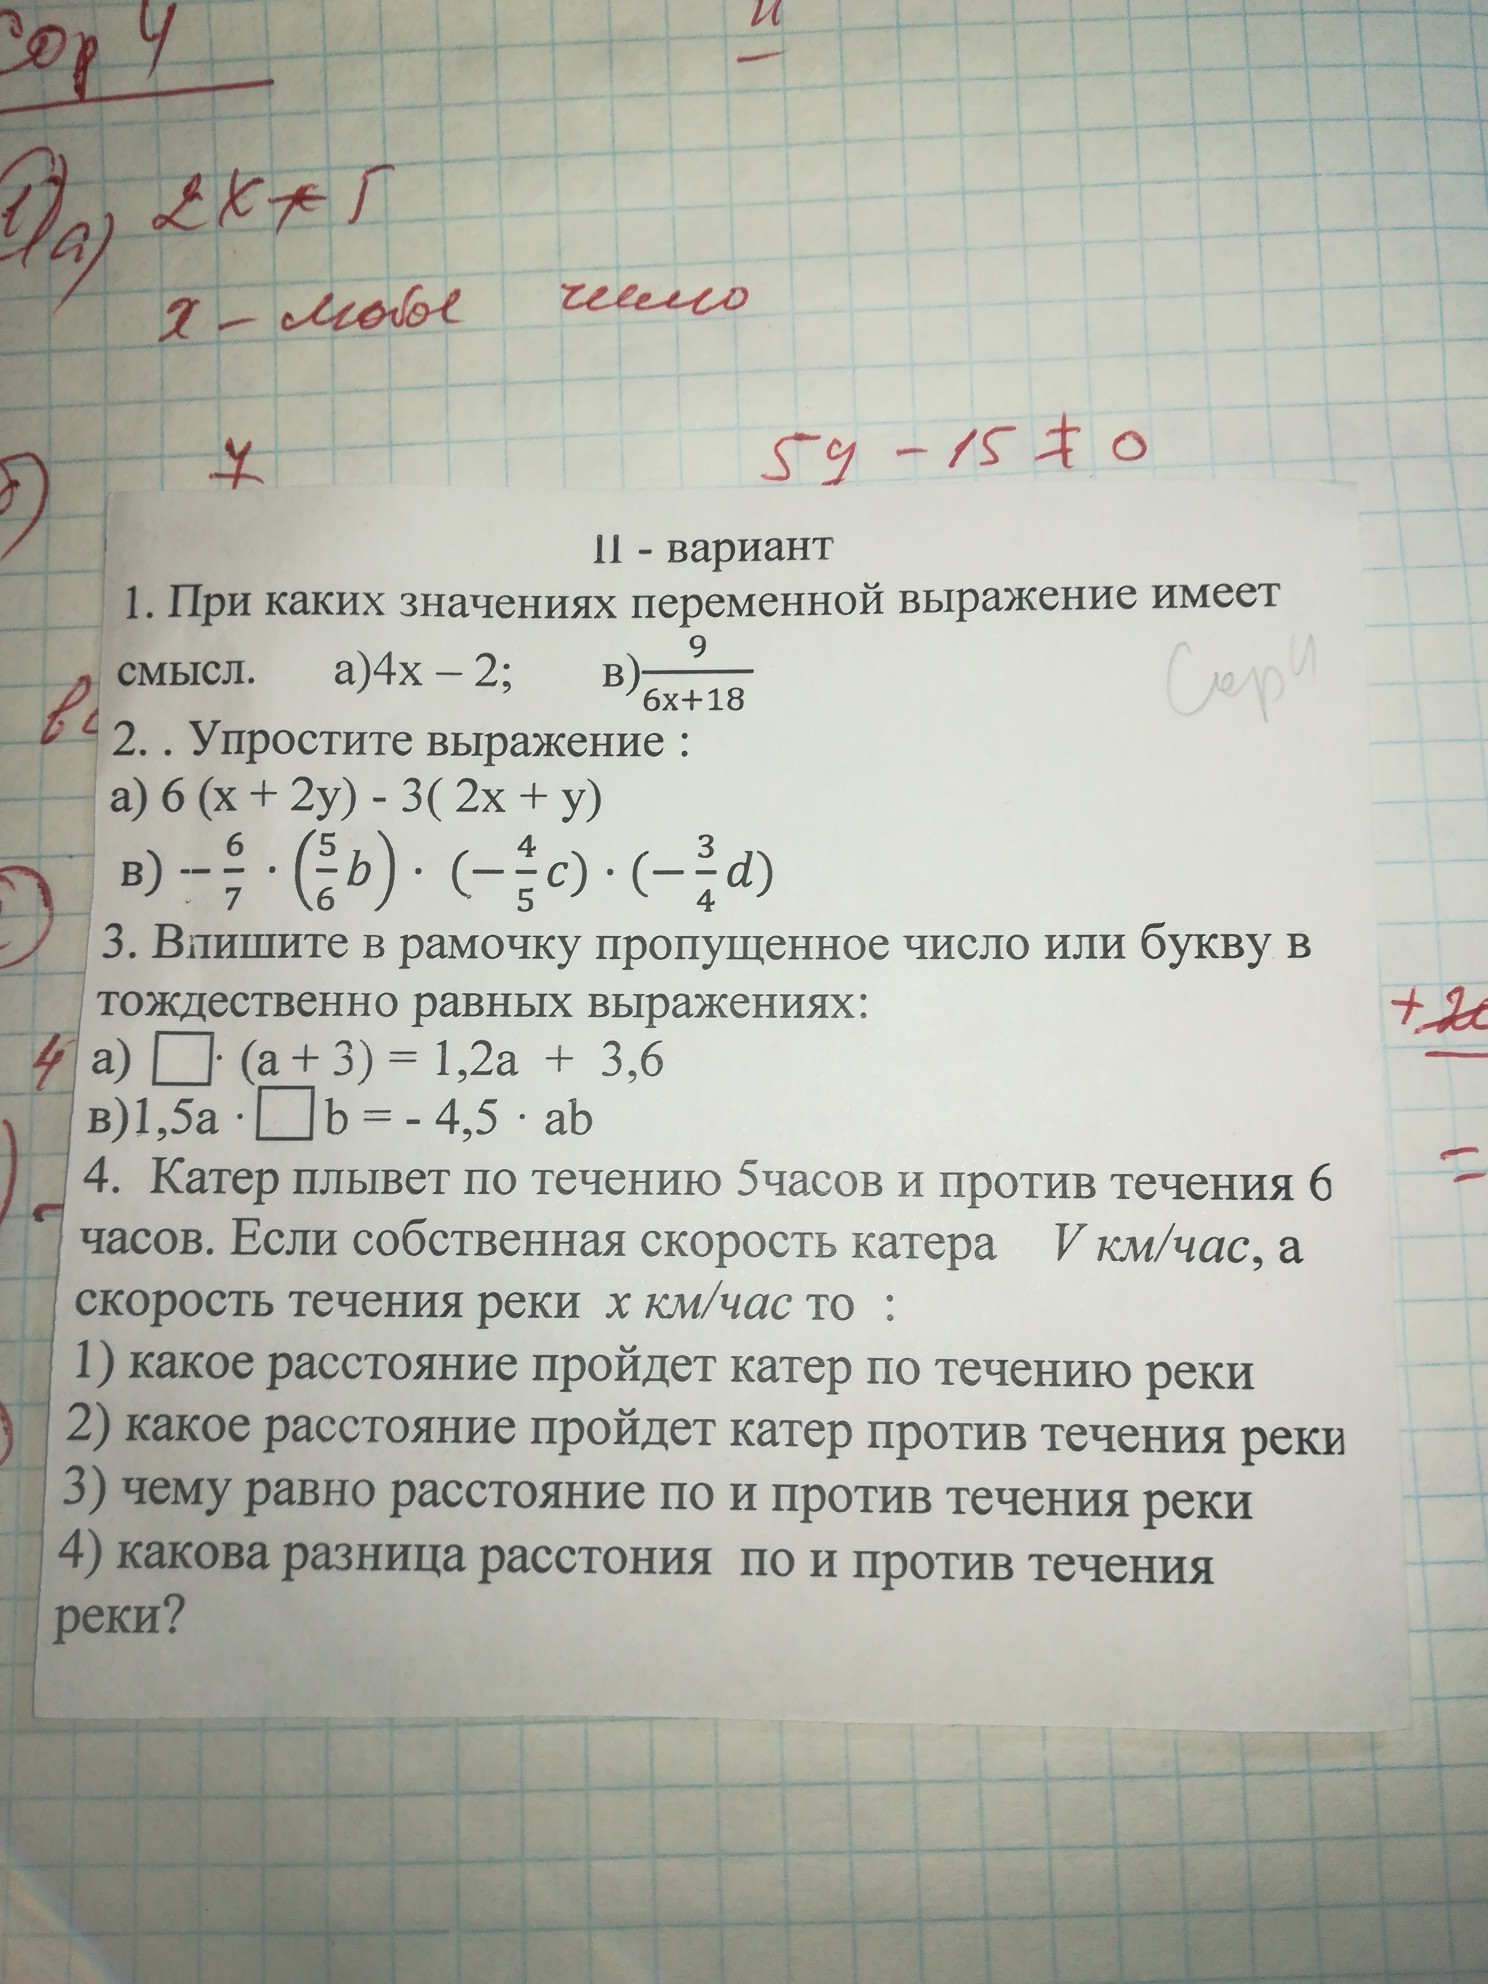 Сор 4
1) а) 2x + 5
x - любое число
б) 7 5y - 15 ≠ 0
II - вариант
1. При каких значениях переменной выражение имеет
смысл. а)4x – 2; в) 9/(6x+18)
Сор 4
2. . Упростите выражение :
а) 6 (x + 2y) - 3( 2x + y)
в) −6/7 · (5/6 b) · (−4/5 c) · (−3/4 d)
3. Впишите в рамочку пропущенное число или букву в
тождественно равных выражениях:
а) □· (a + 3) = 1,2a + 3,6
в)1,5a · □ b = - 4,5 · ab
4. Катер плывет по течению 5часов и против течения 6
часов. Если собственная скорость катера V км/час, а
скорость течения реки x км/час то :
1) какое расстояние пройдет катер по течению реки
2) какое расстояние пройдет катер против течения реки
3) чему равно расстояние по и против течения реки
4) какова разница расстония по и против течения
реки?